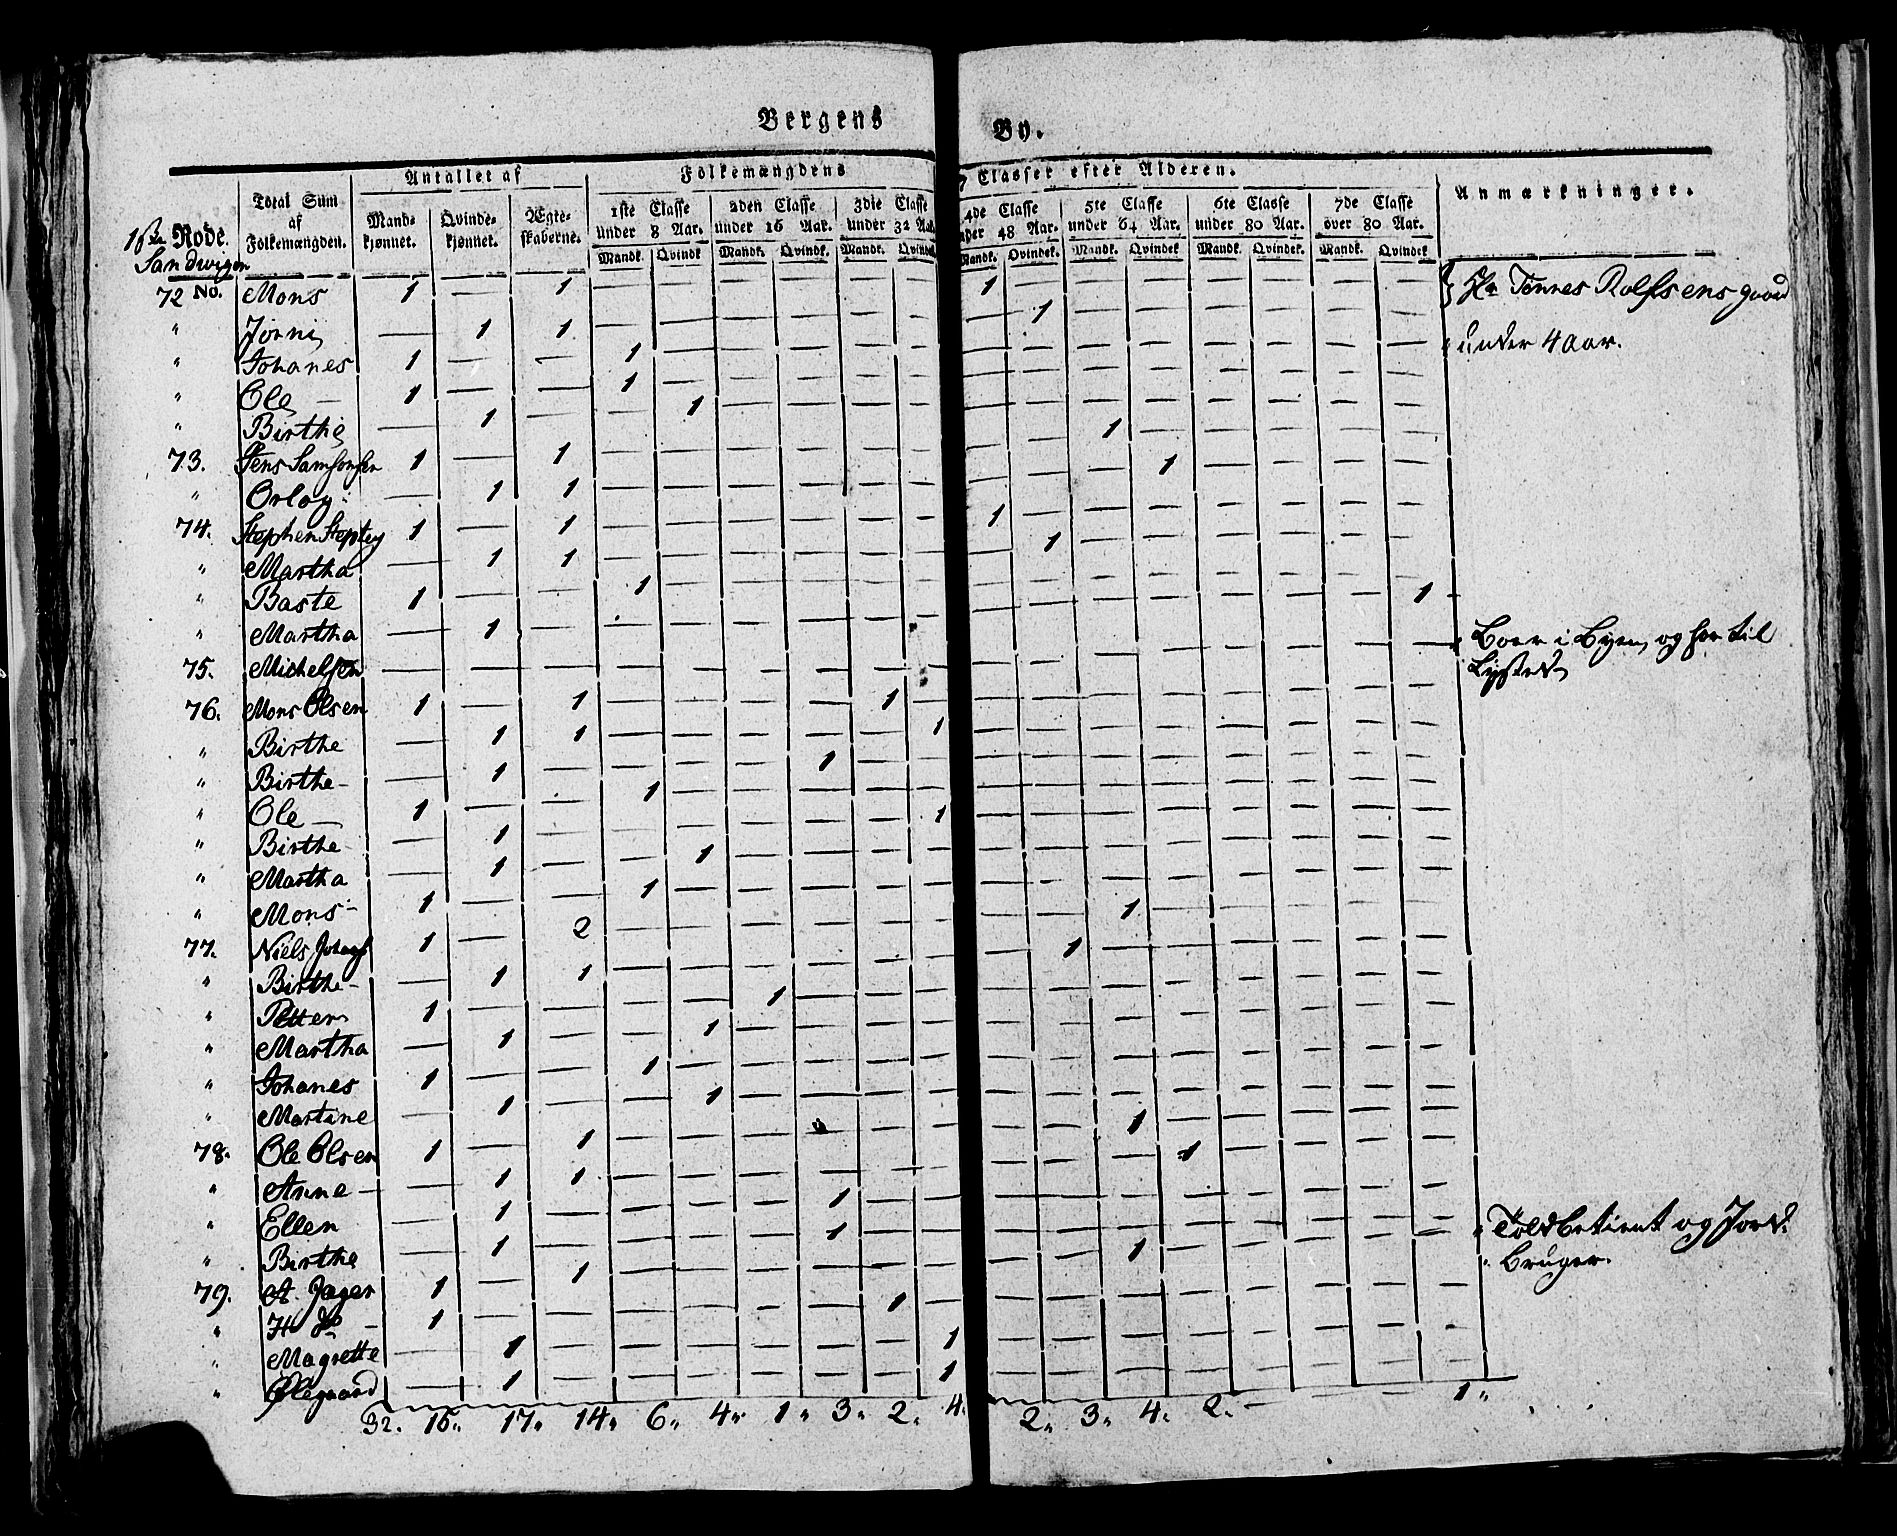 Bergens By.
Antallet af Folkemængdens 7 Classer efter Alderen.
Anmærkninger.
16de Rode. Total Sum af Folkemængden. Mandkjønnet. Qvindekjønnet. Ægteskaberne. 1ste Classe under 8 Aar. 2den Classe under 16 Aar. 3die Classe under 32 Aar. 4de Classe under 48 Aar. 5te Classe under 64 Aar. 6te Classe under 80 Aar. 7de Classe over 80 Aar.
Sandvigen
Mandk. Qvindk. Mandk. Qvindk. Mandk. Qvindek. Mandk. Qvindek. Mandk. Qvindek. Mandk. Qvindek. Mandk. Qvindek.
72 No. Mons 1 — 1 — — — — — — 1 — — — — — — —
" — 1 1 — — — — — — — 1 — — — — — —
" Johanes 1 — — 1 — — — — — — — — — — — — — " under 4 Aar.
" Ole — 1 — — 1 — — — — — — — — — — — — —
" Birthe — 1 — — 1 — — — — — — — — — — — —
73. Jens Samsonsen 1 — 1 — — — — — — — — 1 — — — — —
" — 1 1 — — — — — — — — — 1 — — — —
74. Stephen 1 — 1 — — — — — — 1 — — — — — — —
" Martha — 1 1 — — — — — — — 1 — — — — — —
" Baste 1 — — 1 — — — — — — — — — — — — —
" Martha — 1 — — — — — — — — — — — — — — 1
75. Michelsen Boer i Byen, og har til
Lysted
76. Mons Olsen 1 — 1 — — — — 1 — — — — — — — — —
" Birthe — 1 1 — — — — — 1 — — — — — — — —
" Birthe — — 1 — — — — 1 — — — — — — — — — —
" Ole — 1 — — 1 — — — — — — — — — — — — —
" Birthe — 1 — — — — — — 1 — — — — — — — —
" Martha — 1 — — 1 — — — — — — — — — — — —
" Mons — 1 — — 1 — — — — — — — — — — — — —
77. Niels 1 — 2 — — — — — — — — 1 — — — — —
" Birthe — — 1 1 — — — — — — — 1 — — — — — —
" Petter 1 — — — — 1 — — — — — — — — — — —
" Martha — 1 — — 1 — — — — — — — — — — — —
" Johanes 1 — — 1 — — — — — — — — — — — — —
" Martine — 1 — — 1 — — — — — — — — — — — —
78. Ole Olsen 1 — 1 — — — — — — — — 1 — — — — —
" Anne — — 1 1 — — — — — — — — — 1 — — — —
" Ellen — 1 — — — — 1 — — — — — — — — — —
" Birthe — 1 — — — — 1 — — — — — — — — — —
79. A. Jager 1 — 1 — — — — — — — — 1 — — — — — " Toldbetient og Jord-
" Bruger.
" 1 — — — — — — 1 — — — — — — — — —
" Magrette — 1 — — — — — — 1 — — — — — — — —
" — 1 — — — — — — 1 — — — — — — — —
32. 15. 17. 14. 6. 4. 1. 3. 2. 4. 2. 3. 4. 2. — 1.